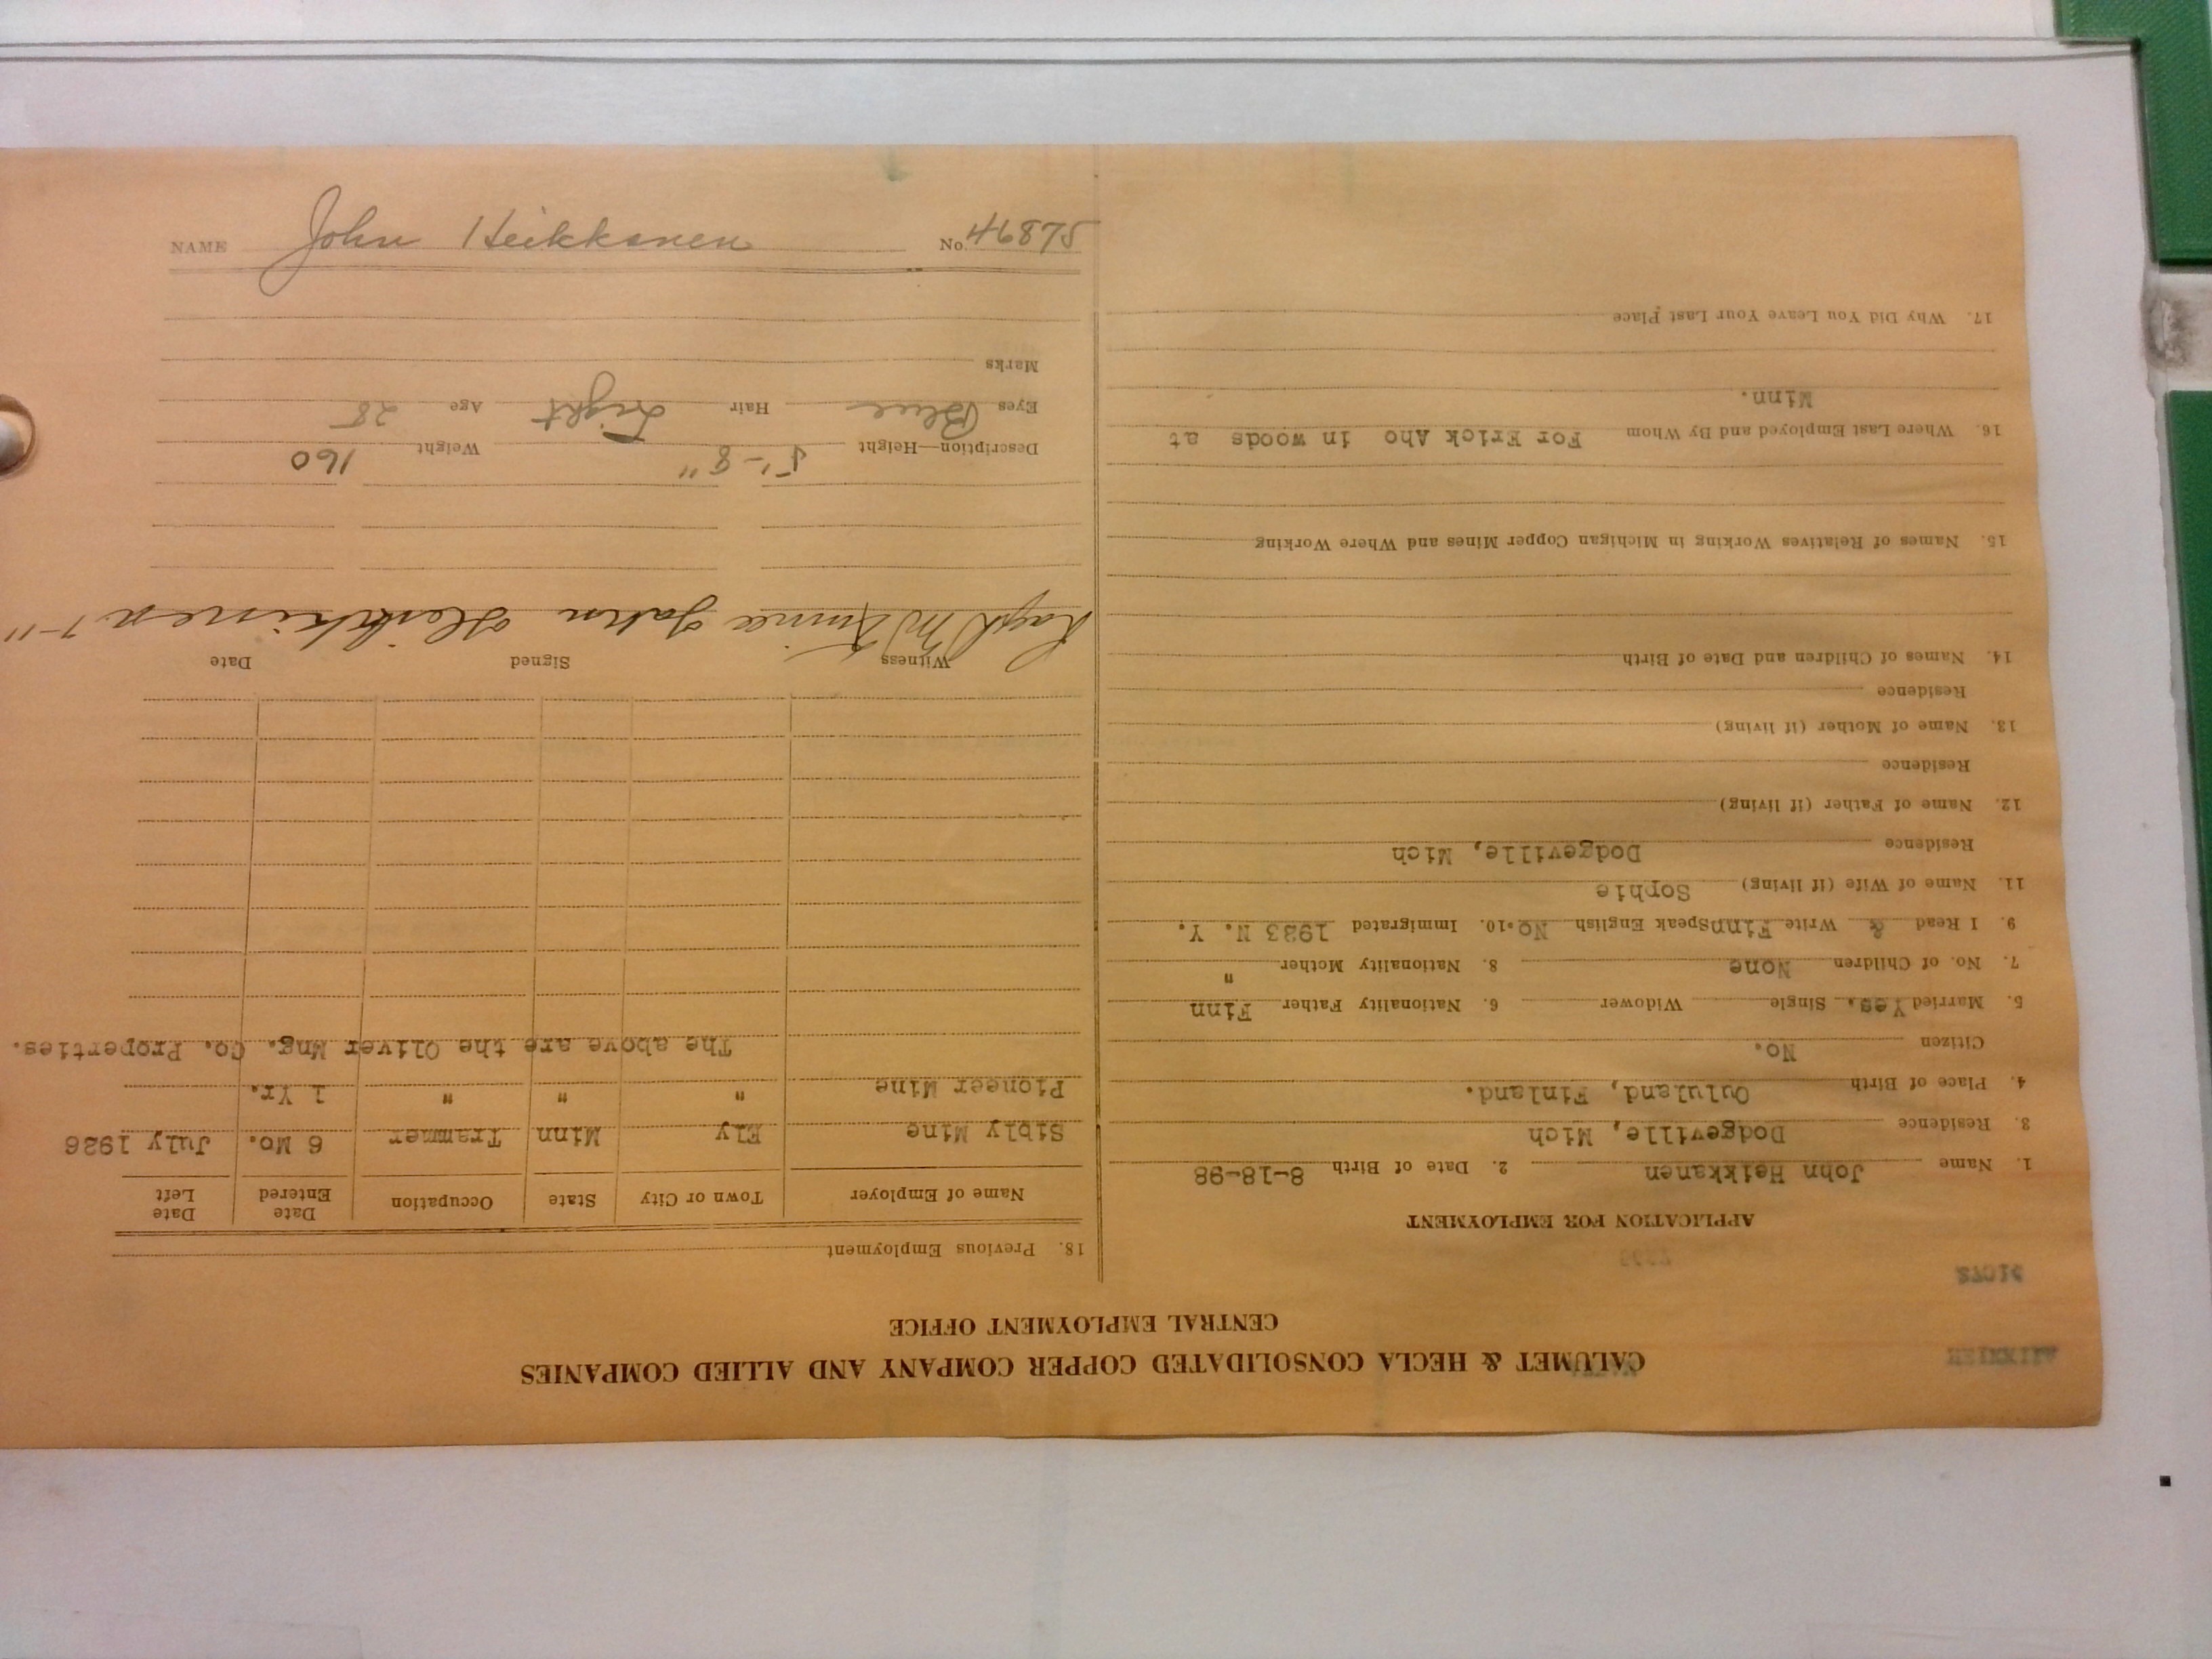 CALUMET & HECLA CONSOLIDATED COPPER COMPANY AND ALLIED COMPANIES
CENTRAL EMPLOYMENT OFFICE
APPLICATION FOR EMPLOYMENT
1. Name John Heikkanen 2. Date of Birth 8-18-98
3. Residence Dodgeville, Mich
4. Place of Birth Oululand, Finland.
Citizen No.
5. Married Yes. Single Widower 6. Nationality Father Finn
7. No. of Children None 8. Nationality Mother "
9. I Read & Write Finn Speak English No. 10. Immigrated 1923 N. Y.
11. Name of Wife (if living) Sophie
Residence Dodgeville, Mich
12. Name of Father (if living)
Residence
13. Name of Mother (if living)
Residence
14. Names of Children and Date of Birth
15. Names of Relatives Working in Michigan Copper Mines and Where Working
16. Where Last Employed and By Whom For Erick Aho in woods at
Minn.
17. Why Did You Leave Your Last Place
18. Previous Employment
Name of Employer Town or City State Occupation Date Entered Date Left
Sibly Mine Ely Minn Trammer 6 Mo. July 1926
Pioneer Mine " " " 1 Yr.
The above are the Oliver Mng. Co. Properties.
Witness Signed Date
John
Description—Height 5'-8" Weight 160
Eyes Blue Hair Light Age 28
Marks
NAME John Heikkanen No. 46875